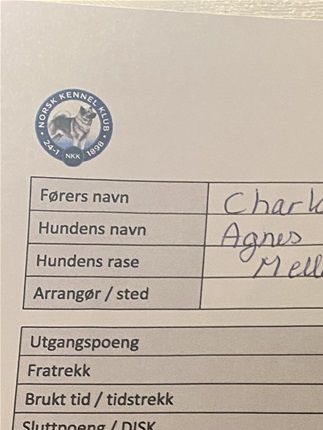 NORSK KENNEL KLUB
24-1 NKK 1898
Førers navn
Hundens navn Agnes
Hundens rase
Arrangør / sted
Utgangspoeng
Fratrekk
Brukt tid / tidstrekk
Sluttpoeng / DISK